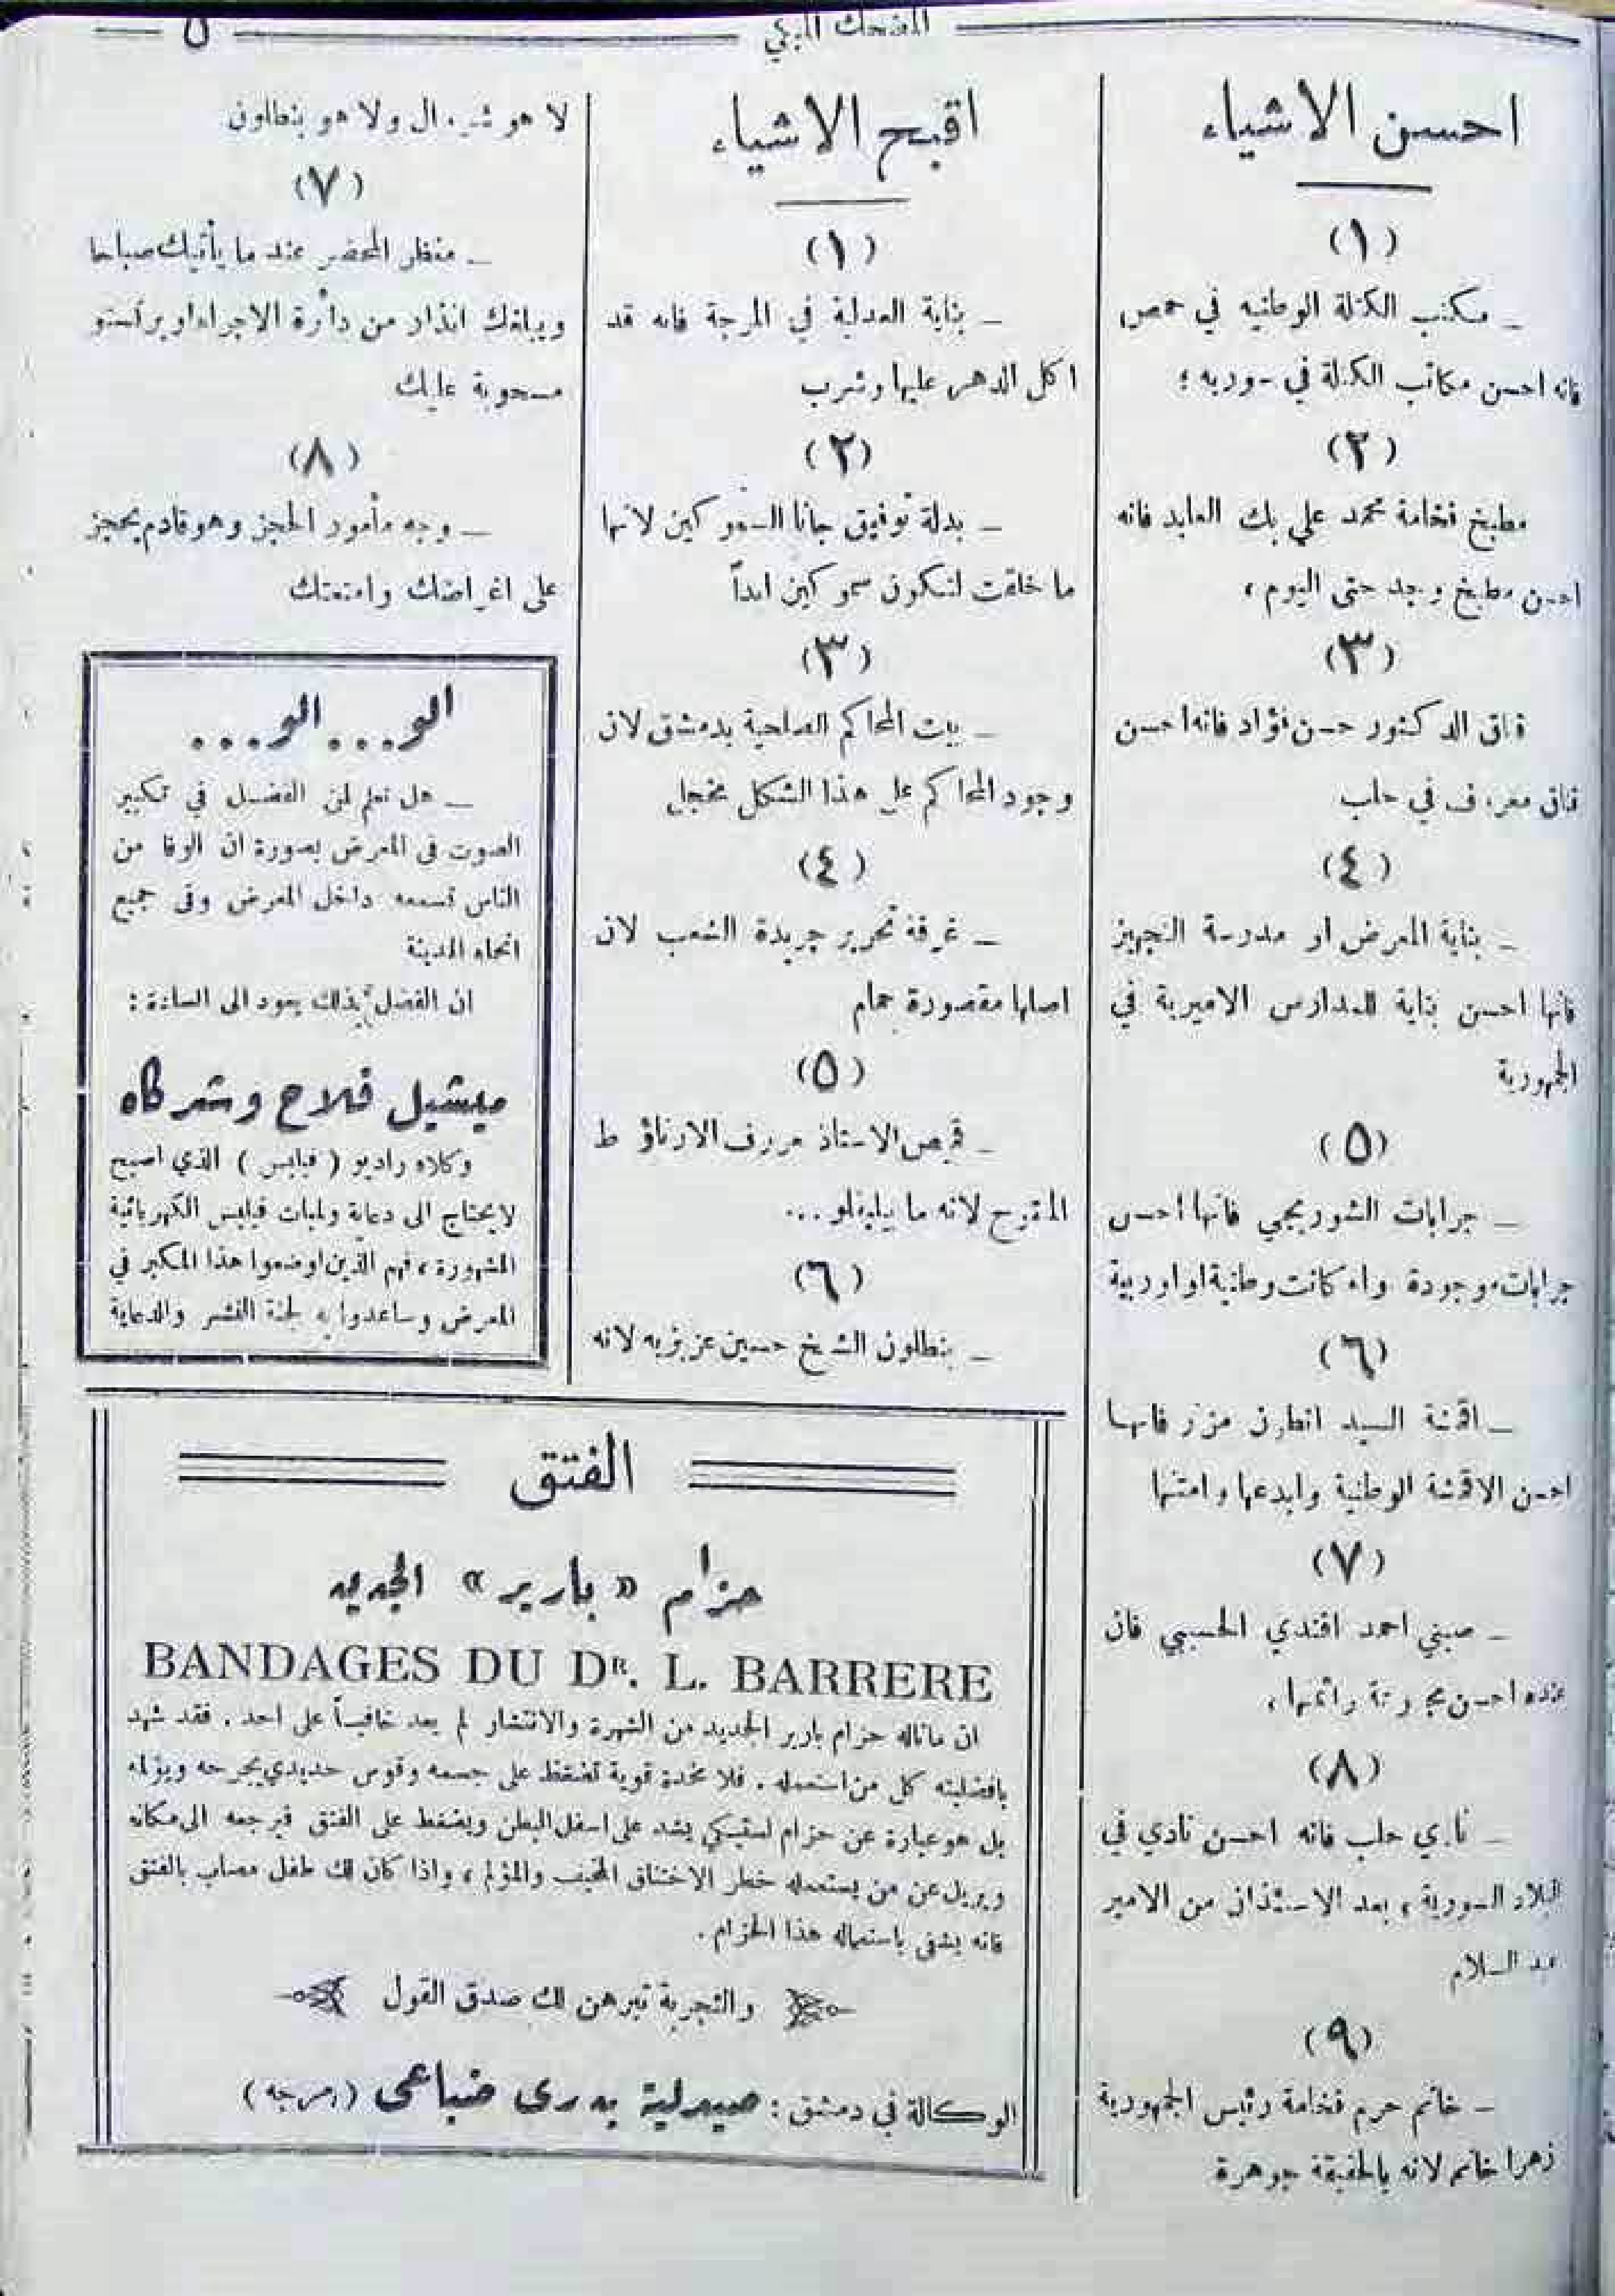 المضحك المبكي
٥
احسن الاشياء
(١)
ـ مكتب الكتلة الوطنيه في حمص،
فانه احسن مكاتب الكتلة في سوريه ؛
(٢)
مطبخ فخامة محمد علي بك العابد فانه
احسن مطبخ وجد حتى اليوم ،
(٣)
قناق الدكتور حسن فؤاد فانه احسن
قناق معروف في حلب
(٤)
ـ بناية المعرض او مدرسة التجهيز
فانها احسن بناية للمدارس الاميرية في
الجمهورية
(٥)
ـ جرابات الشوربجي فانها احسن
جرابات موجودة واء كانت وطنية او اوربية
(٦)
ـ اقمشة السيد انطون مزنر فانها
احسن الاقمشة الوطنية وابدعها وامتنها
(٧)
ـ صيني احمد افندي الحسيبي فان
عنده احسن مجموعة واثمنها ،
(٨)
ـ نادي حلب فانه احسن نادي في
البلاد السورية ، بعد الاستئذان من الامير
عبد السلام
(٩)
ـ خاتم حرم فخامة رئيس الجمهورية
زهرا خانم لانه بالحقيقة جوهرة
اقبح الاشياء
(١)
ـ بناية العدلية في المرجة فانه قد
اكل الدهر عليها وشرب
(٢)
ـ بدلة توفيق جانا السمو كين لانها
ما خلقت لتكون سمو كين ابداً
(٣)
ـ بيت المحاكم الصلحية بدمشق لان
وجود المحاكم على هذا الشكل مخجل
(٤)
ـ غرفة تحرير جريدة الشعب لان
اصلها مقصورة حمام
(٥)
ـ قميص الاستاذ معروف الارناؤ ط
المقبح لانه ما بيلبقلو ...
(٦)
ـ بنطلون الشيخ حسين عزيزيه لانه
لا هو شروال ولا هو بنطلون
(٧)
ـ منظر المحضر عند ما يأتيك صباحا
ويبلغك انذار من دائرة الاجراء او برتستو
مسحوبة عليك
(٨)
ـ وجه مأمور الحجز وهو قادم يحجز
على اغراضك وامتعتك
الو... الو...
ـ هل تعلم لمن الفضل في تكبير
الصوت في المعرض بصورة ان الوفا من
الناس تسمعه داخل المعرض وفي جميع
انحاء المدينة
ان الفضل بذلك يعود الى السادة :
ميشيل فلاح وشركاه
وكلاء راديو ( فيليبس ) الذي اصبح
لا يحتاج الى دعاية ولمبات فيليبس الكهربائية
المشهورة ، فهم الذين اوضعوا هذا المكبر في
المعرض وساعدوا به لجنة النشر والدعاية
الفتق
حزام « بارير » الجديد
BANDAGES DU DR. L. BARRERE
ان ماناله حزام بارير الجديد من الشهرة والانتشار لم يعد خافياً على احد . فقد شهد
بافضليته كل من استعمله . فلا مخدة قوية تضغط على جسمه وقوس حديدي يجرحه ويؤلمه
بل هو عبارة عن حزام لستيكي يشد على اسفل البطن ويضغط على الفتق فيرجعه الى مكانه
ويزيل عن من يستعمله خطر الاختناق المخيف والمؤلم ، واذا كان لك طفل مصاب بالفتق
فانه يشفى باستعماله هذا الحزام .
والتجربة تبرهن لك صدق القول
الوكالة في دمشق : صيدلية بدري ضباعي (مرجه)